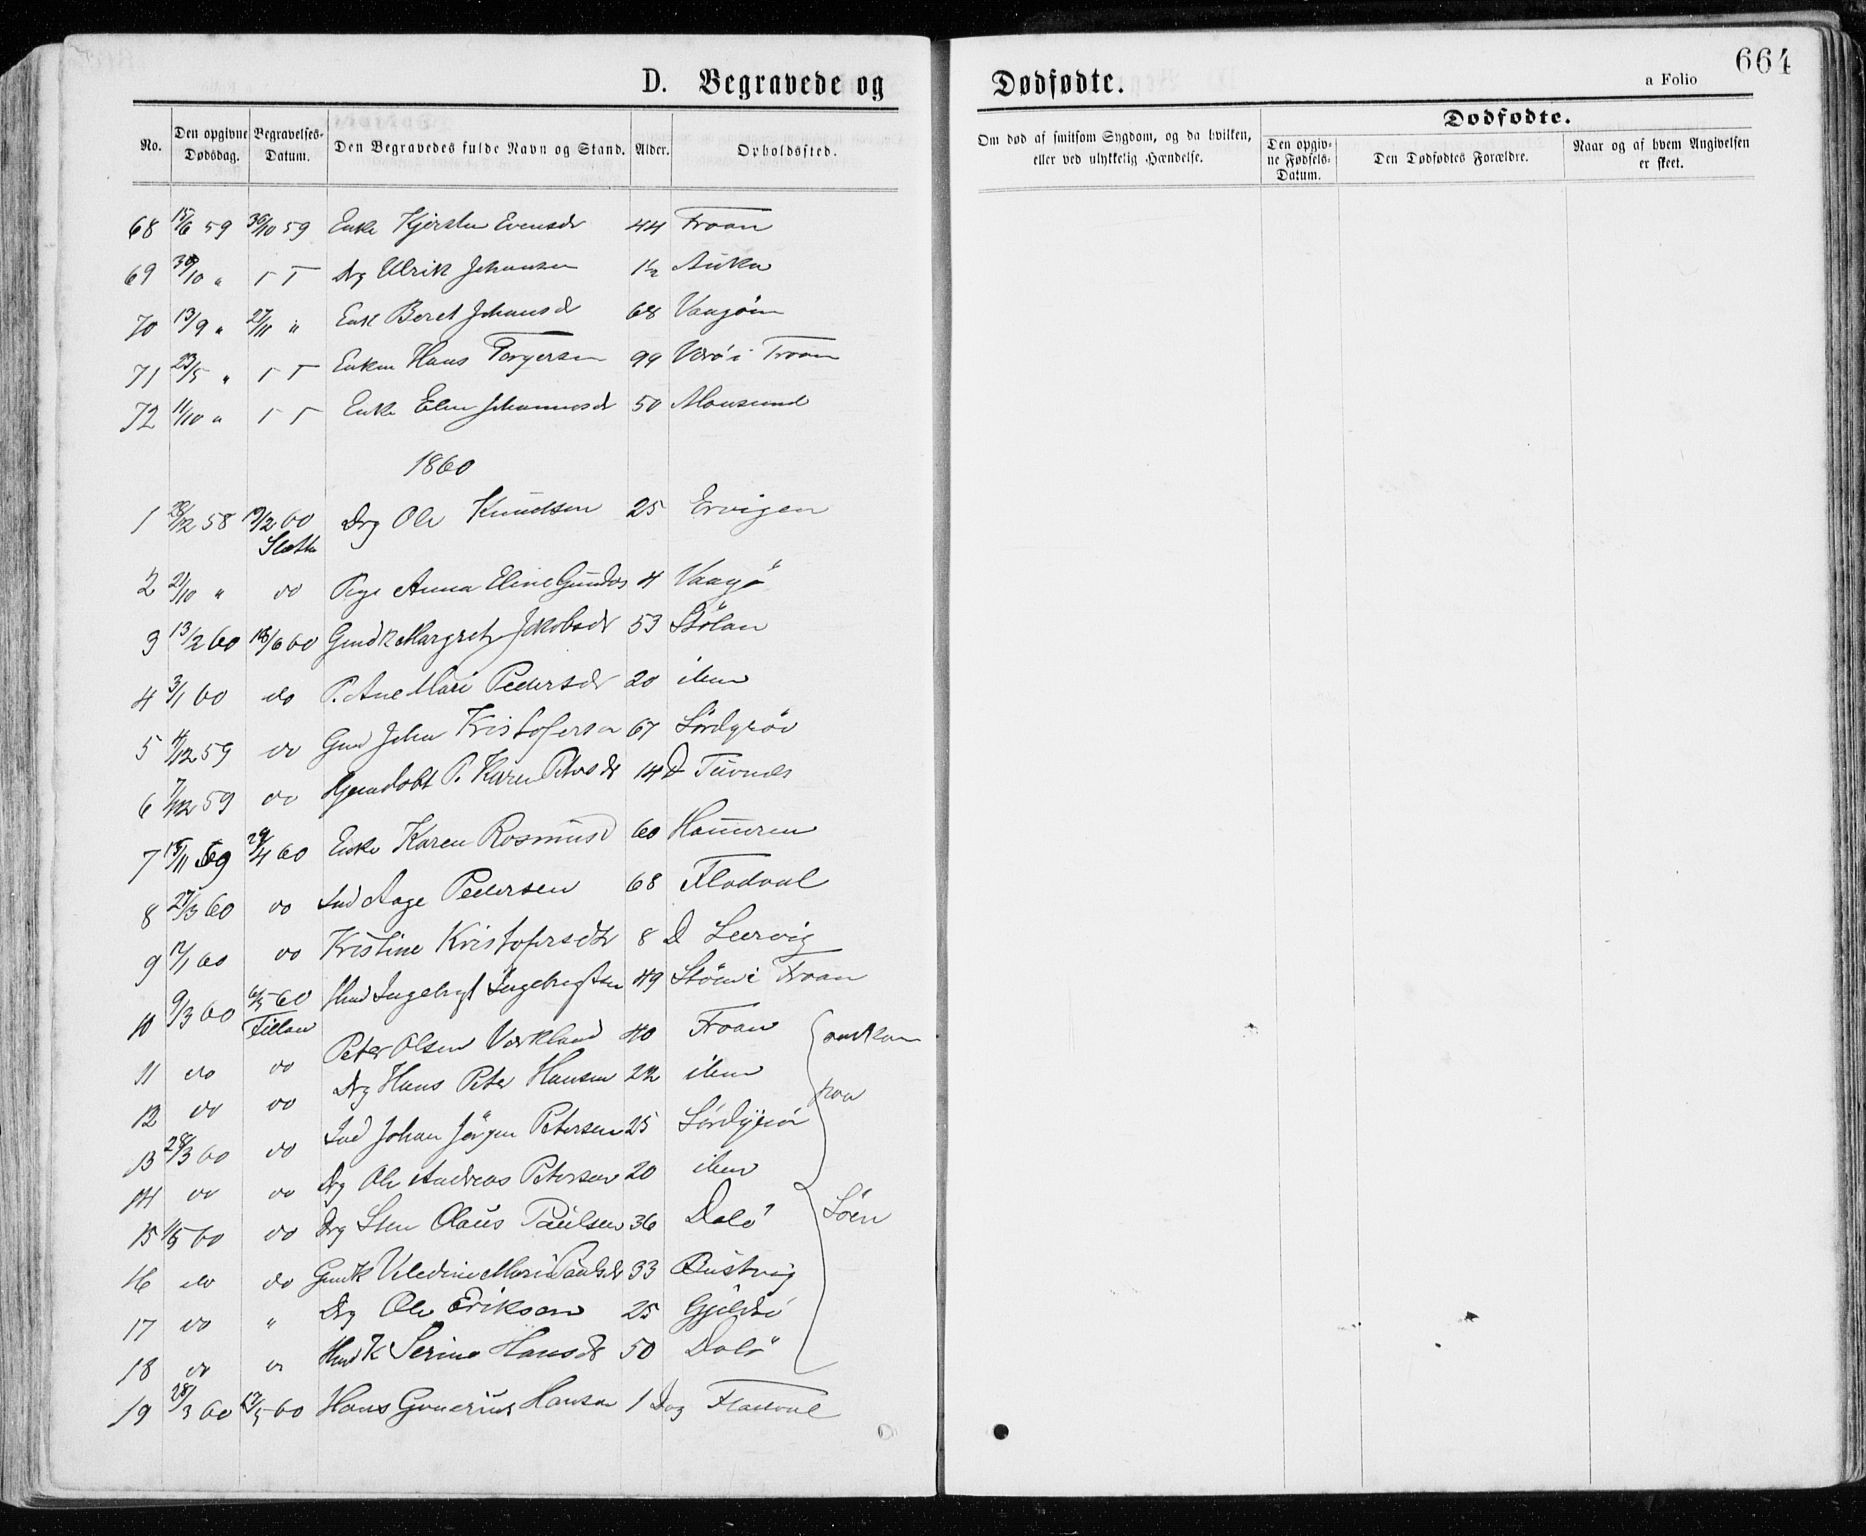 664
D. Begravede og Dødfødte.
a Folio
No. Den opgivne Dødsdag. Begravelses-Datum. Den Begravedes fulde Navn og Stand. Alder. Opholdssted. Om død af smitsom Sygdom, og da hvilken, eller ved ulykkelig Hændelse. Dødfødte. Den opgivne Fødsels-Datum. Den Dødfødtes Forældre. Naar og af hvem Angivelsen er skeet.
68 15/6 59 30/10 59 Enke Kjersten Evensdr 44 Froan
69 30/10 " Drg Ulrik Johansen 1½
70 13/9 " 27/11 " Enke Beret Johansdr 68
71 23/5 " Enkem Hans Torgersen 99 i Froan
72 11/10 " Enke Elen Johannesdr 50 Mausund
1860
1 28/12 58 19/2 60 Drg Ole Knudsen 25 Ervigen
Sletta
2 21/10 " do Pige Anna Eline 4 Vaagø
3 13/2 60 18/6 60 Gmdk Margret Jakobsdr 53 Stølan
4 3/1 60 do P. Ane Mari Pedersdr 20 ibm
5 4/12 59 do Gmd Johan Kristofersen 67 Sørdyrøi
6 7/12 59 do Hjemdøbt P. Karen Petersdr 14 D Tuvnes
7 15/11 59 29/4 60 Enke Karen Rasmusd 60 Hammeren
8 27/3 60 do Ind Aage Pedersen 68 Fladval
9 12/1 60 do Kristine Kristofersdtr 8 D Leervig
10 9/3 60 6/5 60 Hmd Ingebrigt Ingebrigtsen 49 i Froan
Fillan
11 do do Peter Olsen Værkland 40 Froan omkom
12 do do Drg Hans Peter Hansen 22 ibm paa
13 28/3 60 do Ind Johan Jørgen Petersen 25 Sørdyrøi
14 do do Drg Ole Andreas Petersen 20 ibm
15 1/5 60 do Drg Sten Olaus Paulsen 36 Dolø Søen
16 do do Gmdk Mari Paulsdr 33
17 do " Drg Ole Eriksen 25
18 do do Hmd K Serine Hansdr 50 Dolø
19 28/3 60 17/5 60 Hans Gunerius Hansen 1 Dag Fladval